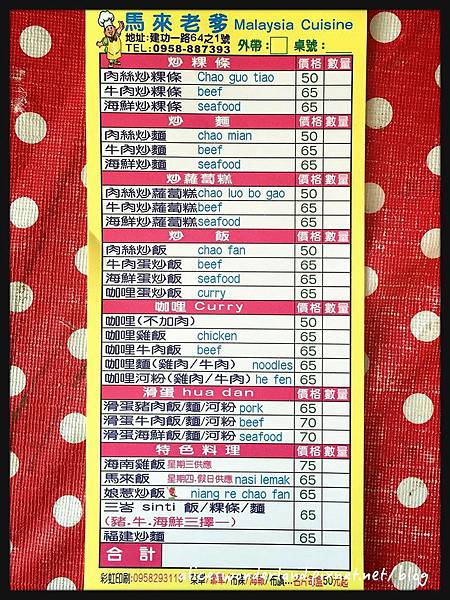 馬來老爹 Malaysia Cuisine
地址:建功一路64之1號
TEL:0958-887393 外帶: 桌號:
炒粿條 價格 數量
肉絲炒粿條 Chao guo tiao 50
牛肉炒粿條 beef 65
海鮮炒粿條 seafood 65
炒麵 價格 數量
肉絲炒麵 chao mian 50
牛肉炒麵 beef 65
海鮮炒麵 seafood 65
炒蘿蔔糕 價格 數量
肉絲炒蘿蔔糕 chao luo bo gao 50
牛肉炒蘿蔔糕 beef 65
海鮮炒蘿蔔糕 seafood 65
炒飯 價格 數量
肉絲蛋炒飯 chao fan 50
牛肉蛋炒飯 beef 65
海鮮蛋炒飯 seafood 65
咖哩蛋炒飯 curry 65
咖哩 Curry 價格 數量
咖哩(不加肉) 50
咖哩雞飯 chicken 65
咖哩牛肉飯 beef 65
咖哩麵(雞肉/牛肉) noodles 65
咖哩河粉(雞肉/牛肉) he fen 65
滑蛋 hua dan 價格 數量
滑蛋豬肉飯/麵/河粉 pork 65
滑蛋牛肉飯/麵/河粉 beef 70
滑蛋海鮮飯/麵/河粉 seafood 70
特色料理 價格 數量
海南雞飯 星期三供應 75
馬來飯 星期四.假日供應 nasi lemak 65
娘惹炒飯 niang re chao fan 65
三峇 sinti 飯/粿條/麵
(豬.牛.海鮮三擇一) 65
福建炒麵 65
合計
彩虹印刷:0958293113